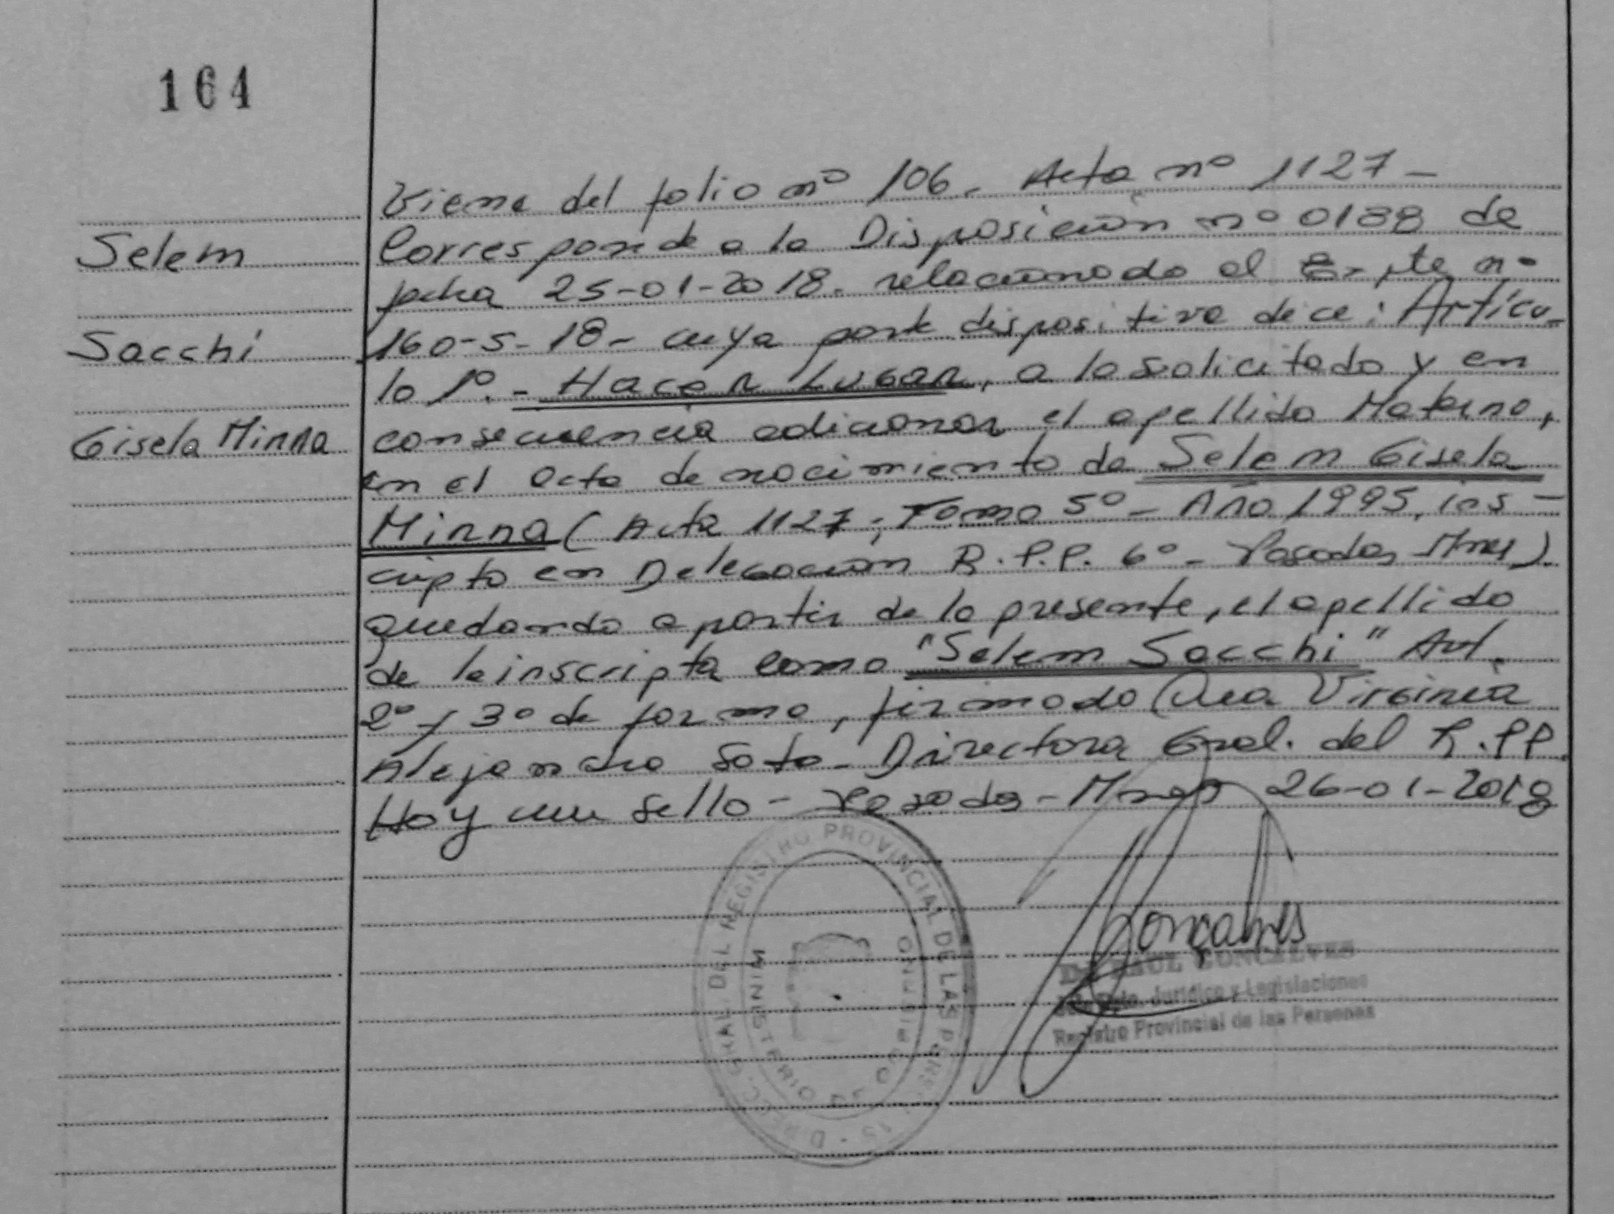 164
Viene del folio nº 106. Acta nº 1127 -
Selem
Corresponde a la Disposición nº 0188 de
fecha 25-01-2018. relacionado al Expte nº
Sacchi
160-S-18- cuya parte dispositiva dice: Artícu-
lo 1º.- Hacer Lugar, a lo solicitado y en
Gisela Minna
consecuencia adicionar el apellido Materno,
en el acta de nacimiento de Selem Gisela
Minna (Acta 1127, Tomo 5º - Año 1995, ins-
cripto en Delegación R.P.P. 6º - Posadas Mnes).
quedando a partir de la presente, el apellido
de la inscripta como "Selem Sacchi" Art.
2º y 3º de forma, firmado Virginia
Alejandra Soto - Directora Gral. del R.PP.
Hay un sello - Posadas - Mnes 26-01-2018
DIREC. GRAL. DEL REGISTRO PROVINCIAL DE LAS PERSONAS
MINISTERIO DE GOBIERNO
Gonçalves
RAUL GONCALVES
Jurídico y Legislaciones
Registro Provincial de las Personas